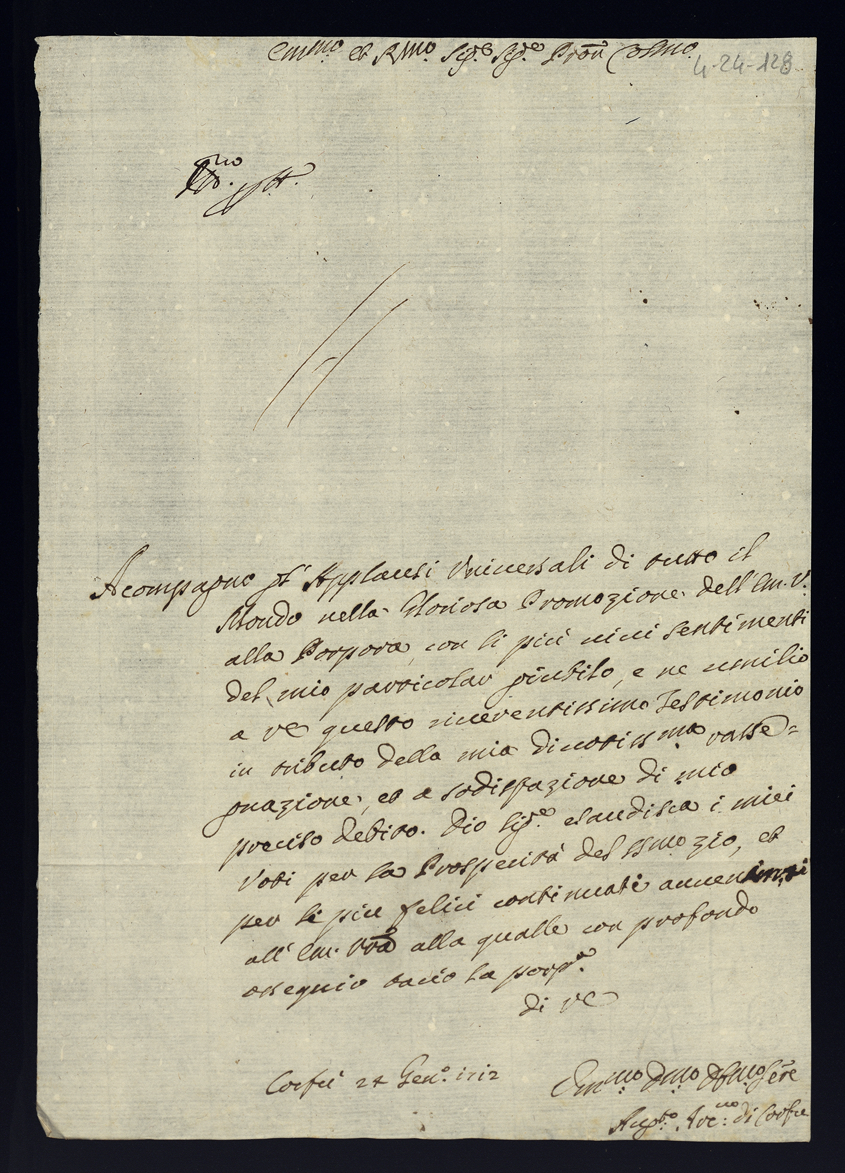 Em.mo et R.mo Sig.e Sig.e Pron Colmo
4-24-128
Acompagno gl' Applausi Vniuersali di tutto il
Mondo nella Gloriosa Promozione dell'Em. V.
alla Porpora, con li più uiui sentimenti
del mio particolar giubilo, e ne umilio
a VE questo riuerentissimo Testimonio
in tributo della mia diuotissma rasse=
gnazione, et a sodisfazione di mio
preciso debito. Dio Sig.e esaudisca i miei
Voti per la Prosperità del SSmo Zio, et
per li più felici continuati auuenimenti
all' Em. Vra alla qualle con profondo
ossequio bacio la porp.a
di VE
Corfù 24 Gen.o 1712
Em.mo Dmo Obmo Sere
Aug.to Arc.uo di Corfu